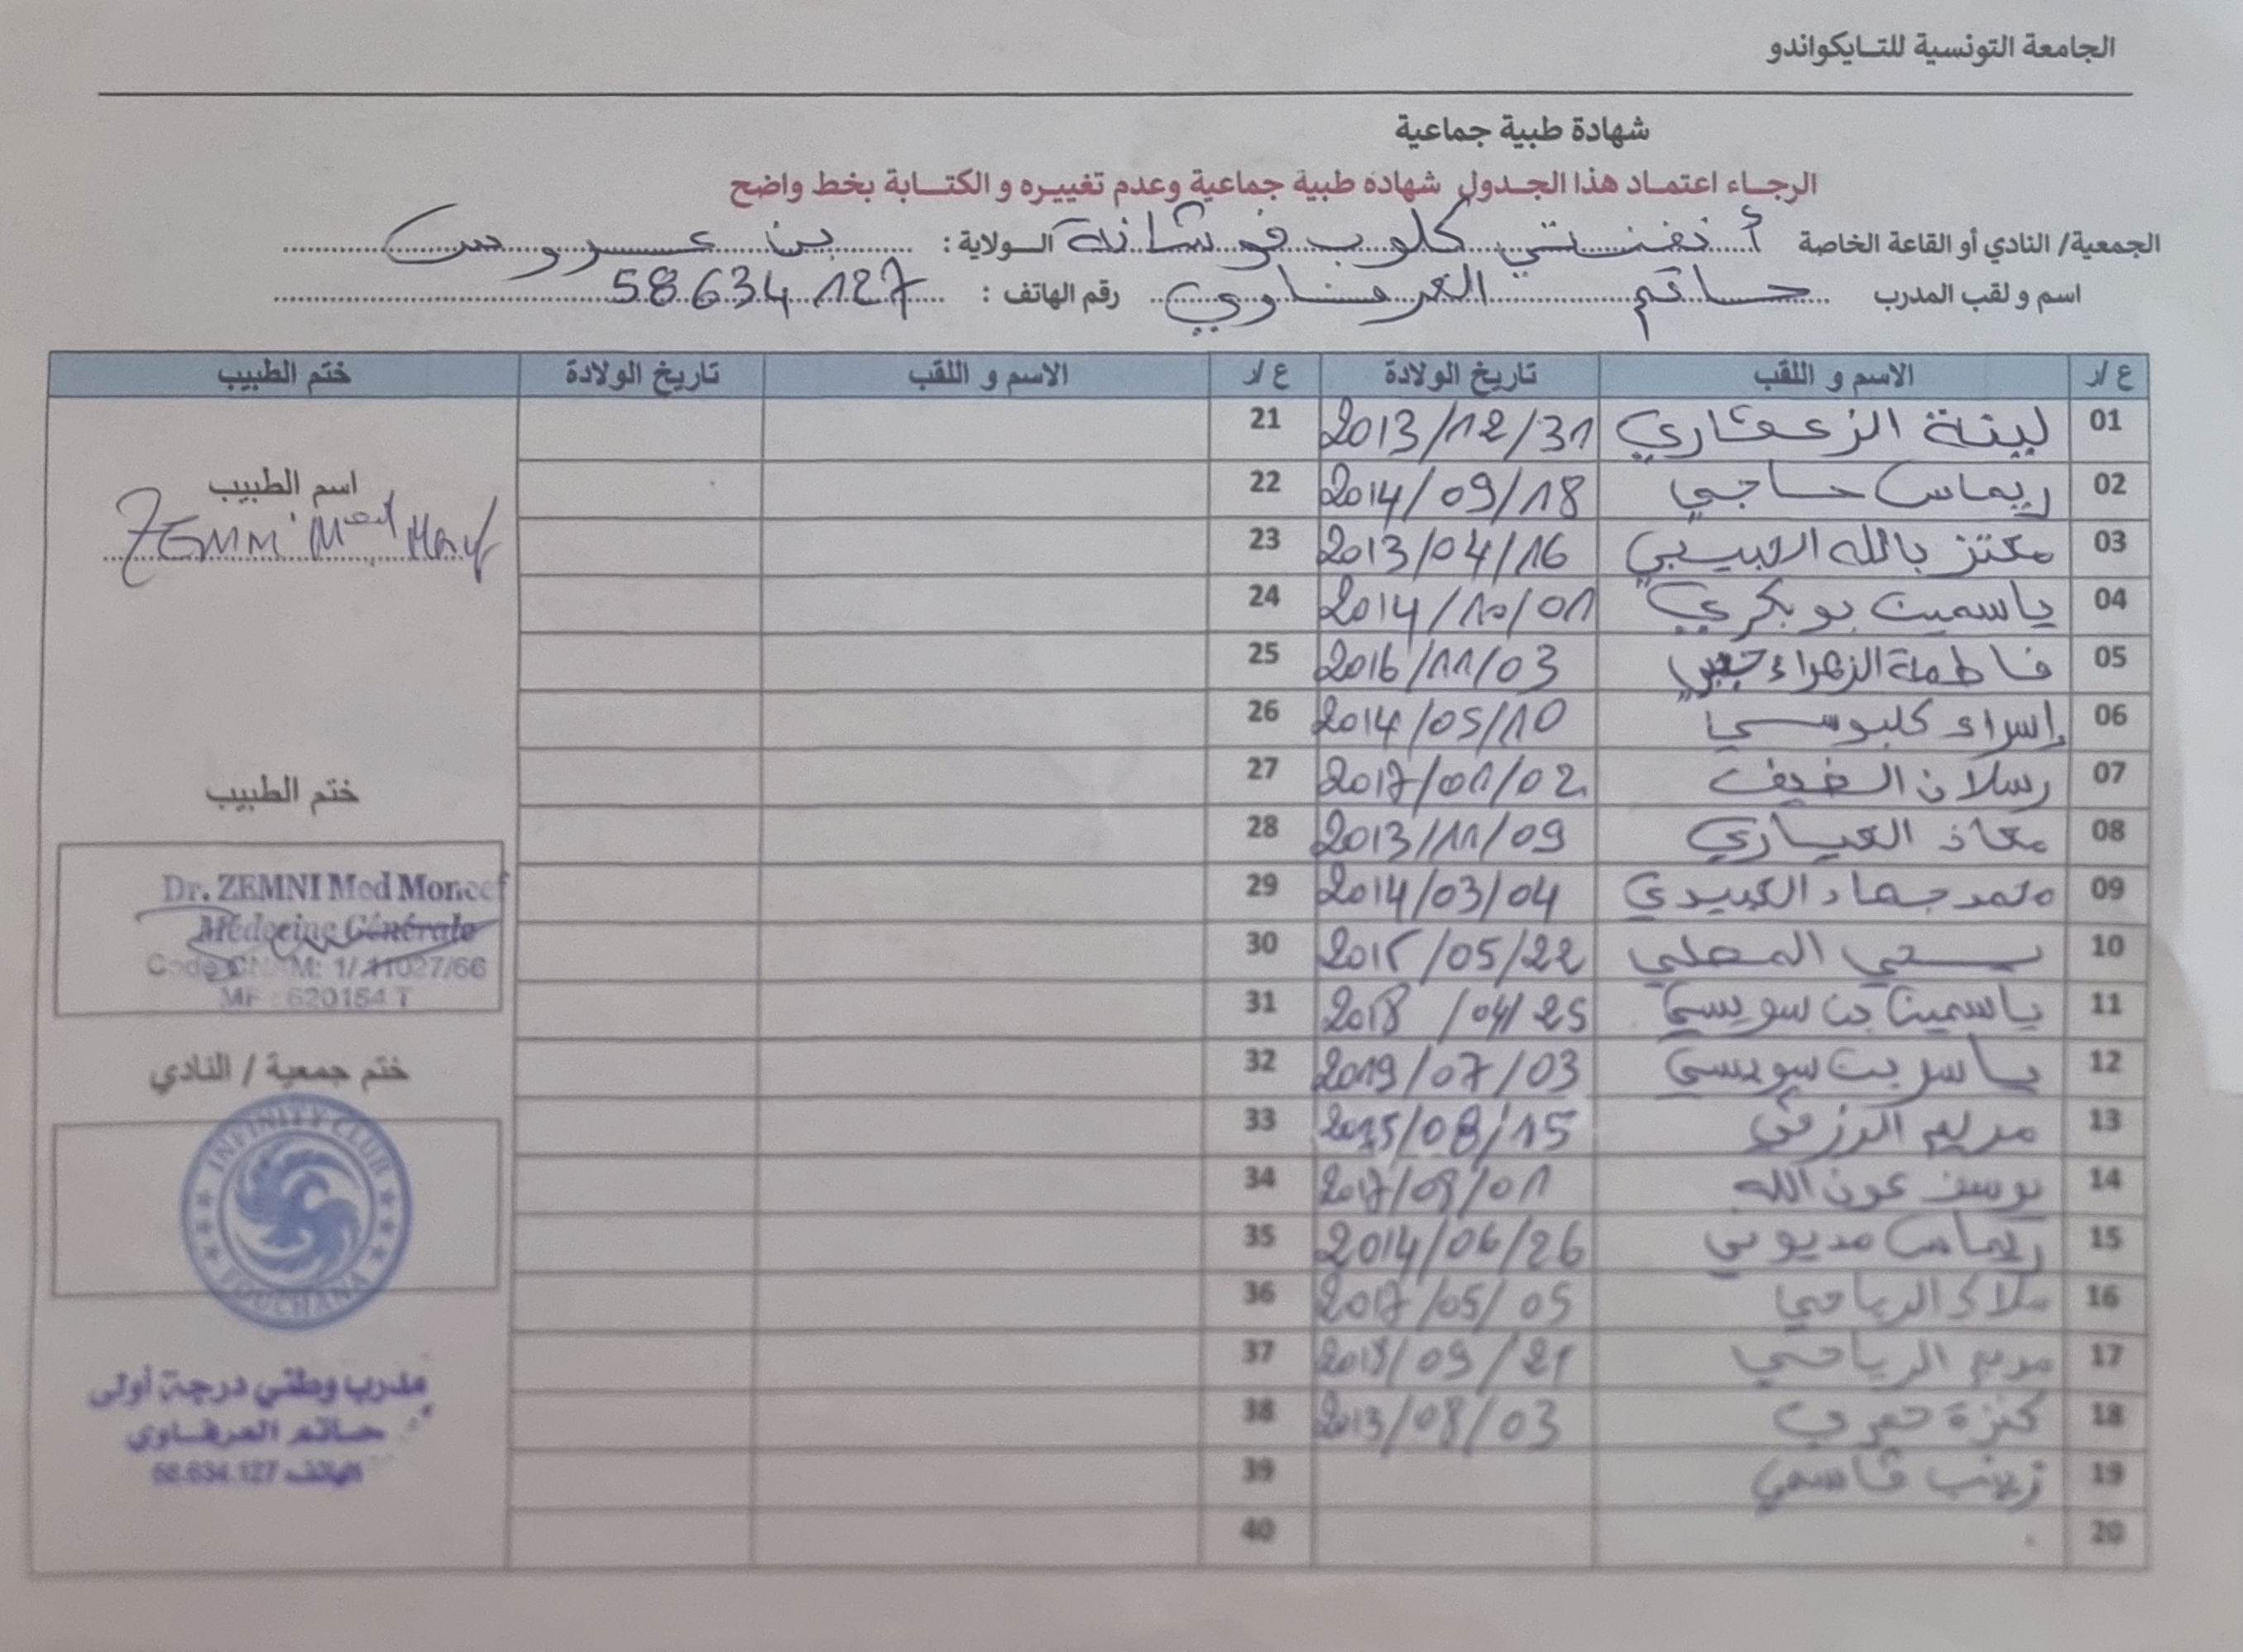 الجامعة التونسية للتايكواندو
شهادة طبية جماعية
الرجاء اعتماد هذا الجدول شهادة طبية جماعية وعدم تغييره و الكتابة بخط واضح
الجمعية/ النادي أو القاعة الخاصة أنفنتي كلوب فوشانة الولاية: بن عروس
اسم و لقب المدرب حاتم العرفاوي رقم الهاتف : 58634127
ع/ر الاسم و اللقب تاريخ الولادة ع/ر الاسم و اللقب تاريخ الولادة ختم الطبيب
01 لينة الزعفاري 2013/12/31 21
02 ريماس حاجي 2014/09/18 22
03 معتز بالله 2013/04/16 23
04 ياسمين بوبكري 2014/10/01 24
05 فاطمة الزهراء 2016/11/03 25
06 إسراء كلبوسي 2014/05/10 26
07 رسلان الضيف 2017/01/02 27
08 معاذ العياري 2013/11/09 28
09 محمد جهاد العبيدي 2014/03/04 29
10 يحي المحلي 2015/05/22 30
11 ياسمين بن سويسي 2018/04/25 31
12 ياسر بن سويسي 2019/07/03 32
13 مريم الرزقي 2015/08/15 33
14 يوسف عون الله 34
15 ريماس مديوني 2014/06/26 35
16 ملاك الرياحي 2017/05/05 36
17 مريم الرياحي 37
18 كنزة 2013/08/03 38
19 زينب قاسمي 39
20 40
اسم الطبيب
ZEMNI Med
ختم الطبيب
Dr. ZEMNI Med Moncef
Médecine Générale
Code CNAM: 1/11027/66
MF : 620154 T
ختم جمعية / النادي
INFINITY CLUB
FOUCHANA
مدرب وطني درجة أولى
حاتم العرفاوي
الهاتف 58.634.127